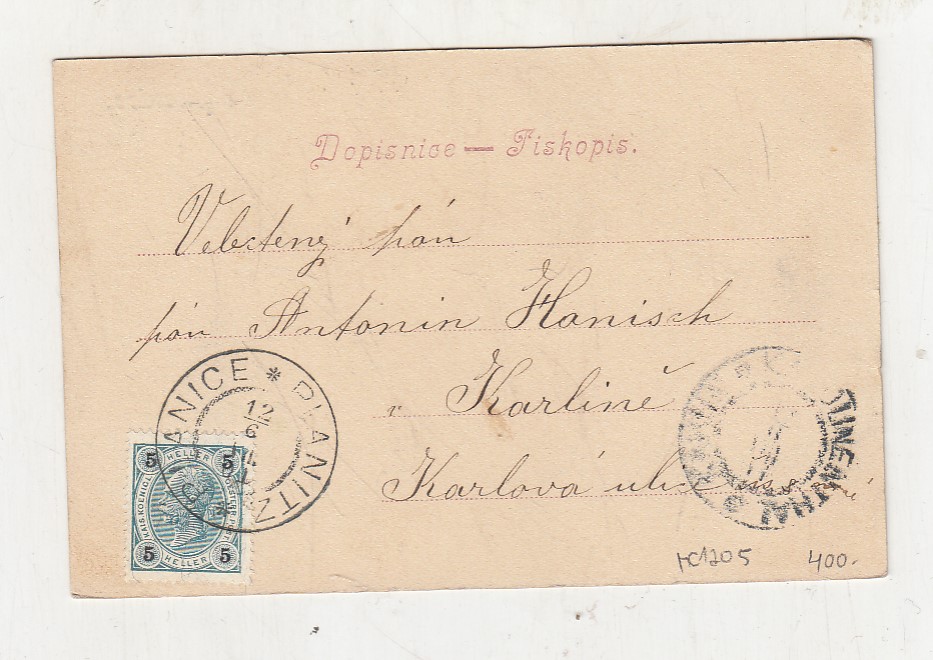 Dopisnice — Tiskopis.
Veletený pán
pán Antonin Hanisch
v Karlině
Karlová ulice
PLANICE * PLANITZ *
12
6
5 HELLER 5
KAIS. KOENIGL. OESTERR. POST
5 HELLER 5
KAROLINENTHAL
HC1205 400.-